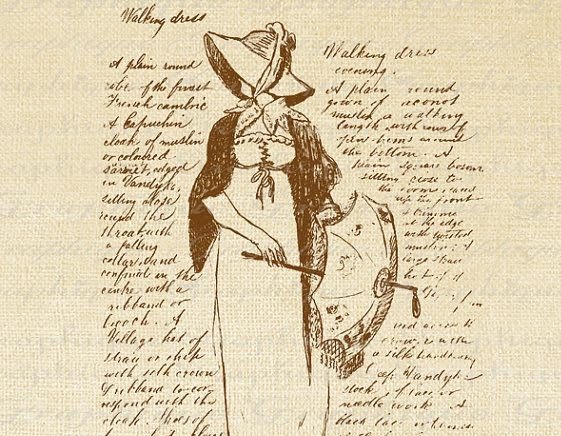 Walking dress
A plain round
robe of the finest
French cambric
A Capuchin
cloak of muslin
or coloured
sarsnet, edged
in Vandyke,
setting close
round the
throat with
a falling
collar, and
confined in the
centre with a
ribband or
brooch. A
Village hat of
straw or chip
with silk crown
& ribband to cor-
respond with the
cloak. Shoes of
Walking dress
evening.
A plain round
gown of
muslin, a walking
length, with rows of
around
the bottom. A
plain square bosom
sitting close to
the
up the front
&
at the edge
with twisted
muslin; a
large straw
hat of
a silk
Vandyke
of lace, or
needle work. A
black lace